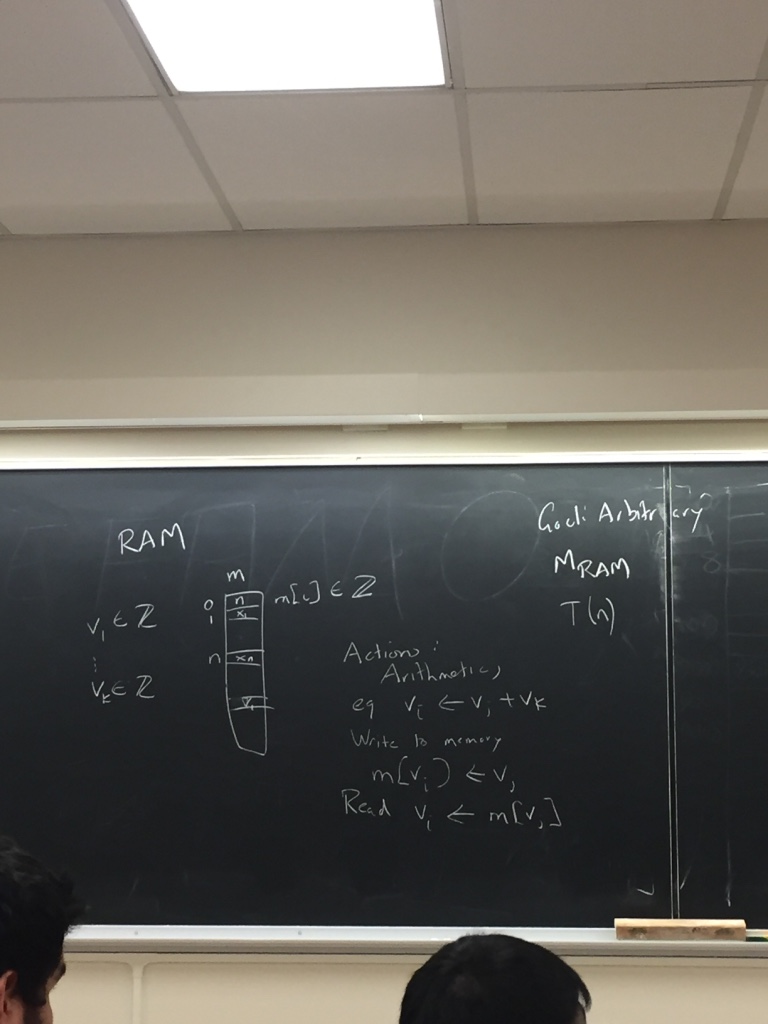 RAM
v₁ ∈ ℤ
⋮
vₖ ∈ ℤ
m
0 n m[i] ∈ ℤ
1 x₁
n xₙ
Actions:
Arithmetic,
eg vᵢ ← vⱼ + vₖ
Write to memory
m[vᵢ] ← vⱼ
Read vᵢ ← m[vⱼ]
Goal: Arbitrary
M_RAM
T(n)